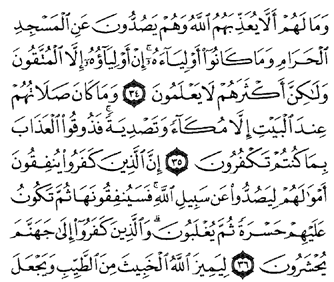 وَمَا لَهُمْ أَلَّا يُعَذِّبَهُمُ ٱللَّهُ وَهُمْ يَصُدُّونَ عَنِ ٱلْمَسْجِدِ
ٱلْحَرَامِ وَمَا كَانُوٓا۟ أَوْلِيَآءَهُۥٓ ۚ إِنْ أَوْلِيَآؤُهُۥٓ إِلَّا ٱلْمُتَّقُونَ
وَلَٰكِنَّ أَكْثَرَهُمْ لَا يَعْلَمُونَ ٣٤ وَمَا كَانَ صَلَاتُهُمْ
عِندَ ٱلْبَيْتِ إِلَّا مُكَآءً وَتَصْدِيَةً ۚ فَذُوقُوا۟ ٱلْعَذَابَ
بِمَا كُنتُمْ تَكْفُرُونَ ٣٥ إِنَّ ٱلَّذِينَ كَفَرُوا۟ يُنفِقُونَ
أَمْوَٰلَهُمْ لِيَصُدُّوا۟ عَن سَبِيلِ ٱللَّهِ ۚ فَسَيُنفِقُونَهَا ثُمَّ تَكُونُ
عَلَيْهِمْ حَسْرَةً ثُمَّ يُغْلَبُونَ ۗ وَٱلَّذِينَ كَفَرُوٓا۟ إِلَىٰ جَهَنَّمَ
يُحْشَرُونَ ٣٦ لِيَمِيزَ ٱللَّهُ ٱلْخَبِيثَ مِنَ ٱلطَّيِّبِ وَيَجْعَلَ